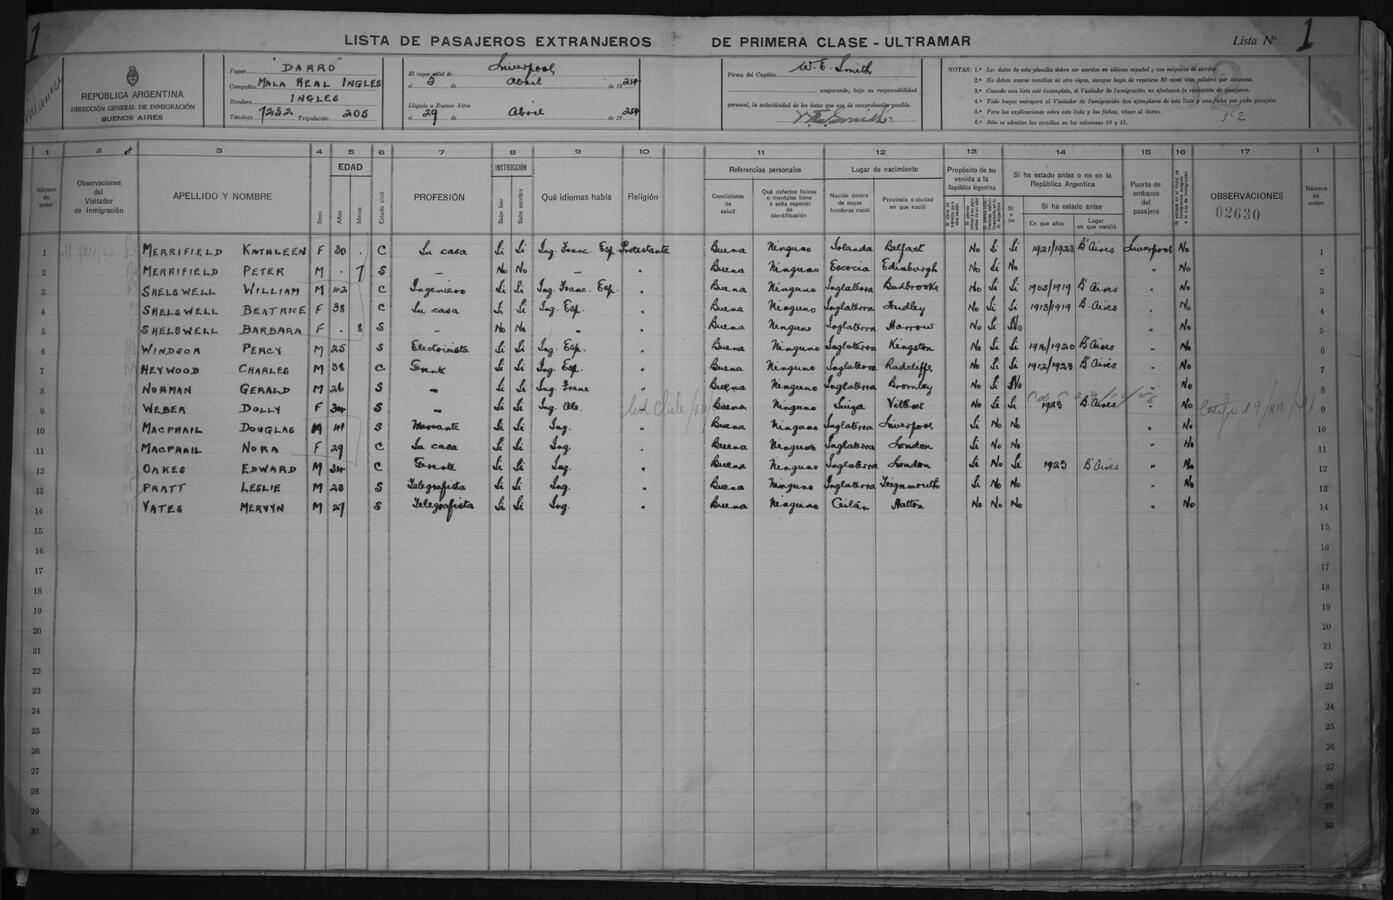 1 LISTA DE PASAJEROS EXTRANJEROS DE PRIMERA CLASE - ULTRAMAR Lista Nº 1
REPÚBLICA ARGENTINA
DIRECCIÓN GENERAL DE INMIGRACIÓN
BUENOS AIRES
Vapor "DARRO"
Compañía MALA REAL INGLES
Bandera INGLES
Tonelaje 7252 Tripulación 205
El vapor salió de Liverpool
el 3 de Abril de 1924
Llegado a Buenos Aires
el 29 de Abril de 1924
Firma del Capitán W. E. Smith
asegurando, bajo su responsabilidad
personal, la autenticidad de los datos que son de comprobación posible.
W. E. Smith
NOTAS: 1.ª Los datos de esta planilla deben ser escritos en idioma español y con máquina de escribir.
2.ª No deben usarse comillas ni otro signo, aunque haya de repetirse 30 veces una palabra por columna.
3.ª Cuando una lista esté incompleta, el Visitador de Inmigración no efectuará la recepción de pasajeros.
4.ª Todo buque entregará al Visitador de Inmigración dos ejemplares de esta lista y una ficha por cada pasajero.
5.ª Para las explicaciones sobre esta lista y las fichas, véase al dorso.
6.ª Sólo se admiten las comillas en las columnas 10 y 15.
52
1 2 3 4 5 6 7 8 9 10 11 12 13 14 15 16 17 1
Número de orden
Observaciones del Visitador de Inmigración
APELLIDO Y NOMBRE
Sexo
EDAD
Años
Meses
Estado civil
PROFESIÓN
INSTRUCCIÓN
Sabe leer
Sabe escribir
Qué idiomas habla
Religión
Referencias personales
Condiciones de salud
Qué defectos físicos o mentales tiene o seña especial de identificación
Lugar de nacimiento
Nación dentro de cuyas fronteras nació
Provincia o ciudad en que nació
Propósito de su venida a la República Argentina
Si ha estado antes o no en la República Argentina
Si o no
Si ha estado antes
En que años
Lugar en que residió
Puerto de embarco del pasajero
OBSERVACIONES
02630
Número de orden
1 MERRIFIELD KATHLEEN F 30 . C Su casa Si Si Ing. Franc. Esp Protestante Buena Ninguno Irlanda Belfast No Si Si 1921/1923 B'Aires Liverpool No 1
2 MERRIFIELD PETER M . 7 S - No No - " Buena Ninguno Escocia Edinburgh No Si No " No 2
3 SHELSWELL WILLIAM M 42 C Ingeniero Si Si Ing. Franc. Esp. " Buena Ninguno Inglaterra Budbrooke No Si Si 1905/1919 B'Aires " No 3
4 SHELSWELL BEATRICE F 38 C Su casa Si Si Ing. Esp. " Buena Ninguno Inglaterra No Si Si 1913/1919 B.Aires " No 4
5 SHELSWELL BARBARA F . 8 S - No No - " Buena Ninguno Inglaterra Harrow No Si No " No 5
6 WINDSOR PERCY M 25 S Electricista Si Si Ing. Esp. " Buena Ninguno Inglaterra Kingston No Si Si B'Aires " No 6
7 HEYWOOD CHARLES M 38 C Gerente Si Si Ing. Esp. " Buena Ninguno Inglaterra Radcliffe No Si Si 1912/1923 B'Aires " No 7
8 NORMAN GERALD M 26 S - Si Si Ing. Franc " Buena Ninguno Inglaterra Bromley No Si No " No 8
9 WEBER DOLLY F 34 S - Si Si Ing. Ale. " Buena Ninguno Suiza No Si Si 1923 B.Aires " No 9
10 MACPHAIL DOUGLAS M 41 S Si Si Ing. " Buena Ninguno Inglaterra Liverpool Si No No " No 10
11 MACPHAIL NORA F 29 C Su casa Si Si Ing. " Buena Ninguno Inglaterra London Si No No " No 11
12 OAKES EDWARD M 34 C Gerente Si Si Ing. " Buena Ninguno Inglaterra London Si No Si 1923 B'Aires " No 12
13 PRATT LESLIE M 23 S Telegrafista Si Si Ing. " Buena Ninguno Inglaterra Teignmouth Si No No " No 13
14 YATES MERVYN M 27 S Telegrafista Si Si Ing. " Buena Ninguno Ceilán Hatton No No No " No 14
15 15
16 16
17 17
18 18
19 19
20 20
21 21
22 22
23 23
24 24
25 25
26 26
27 27
28 28
29 29
30 30